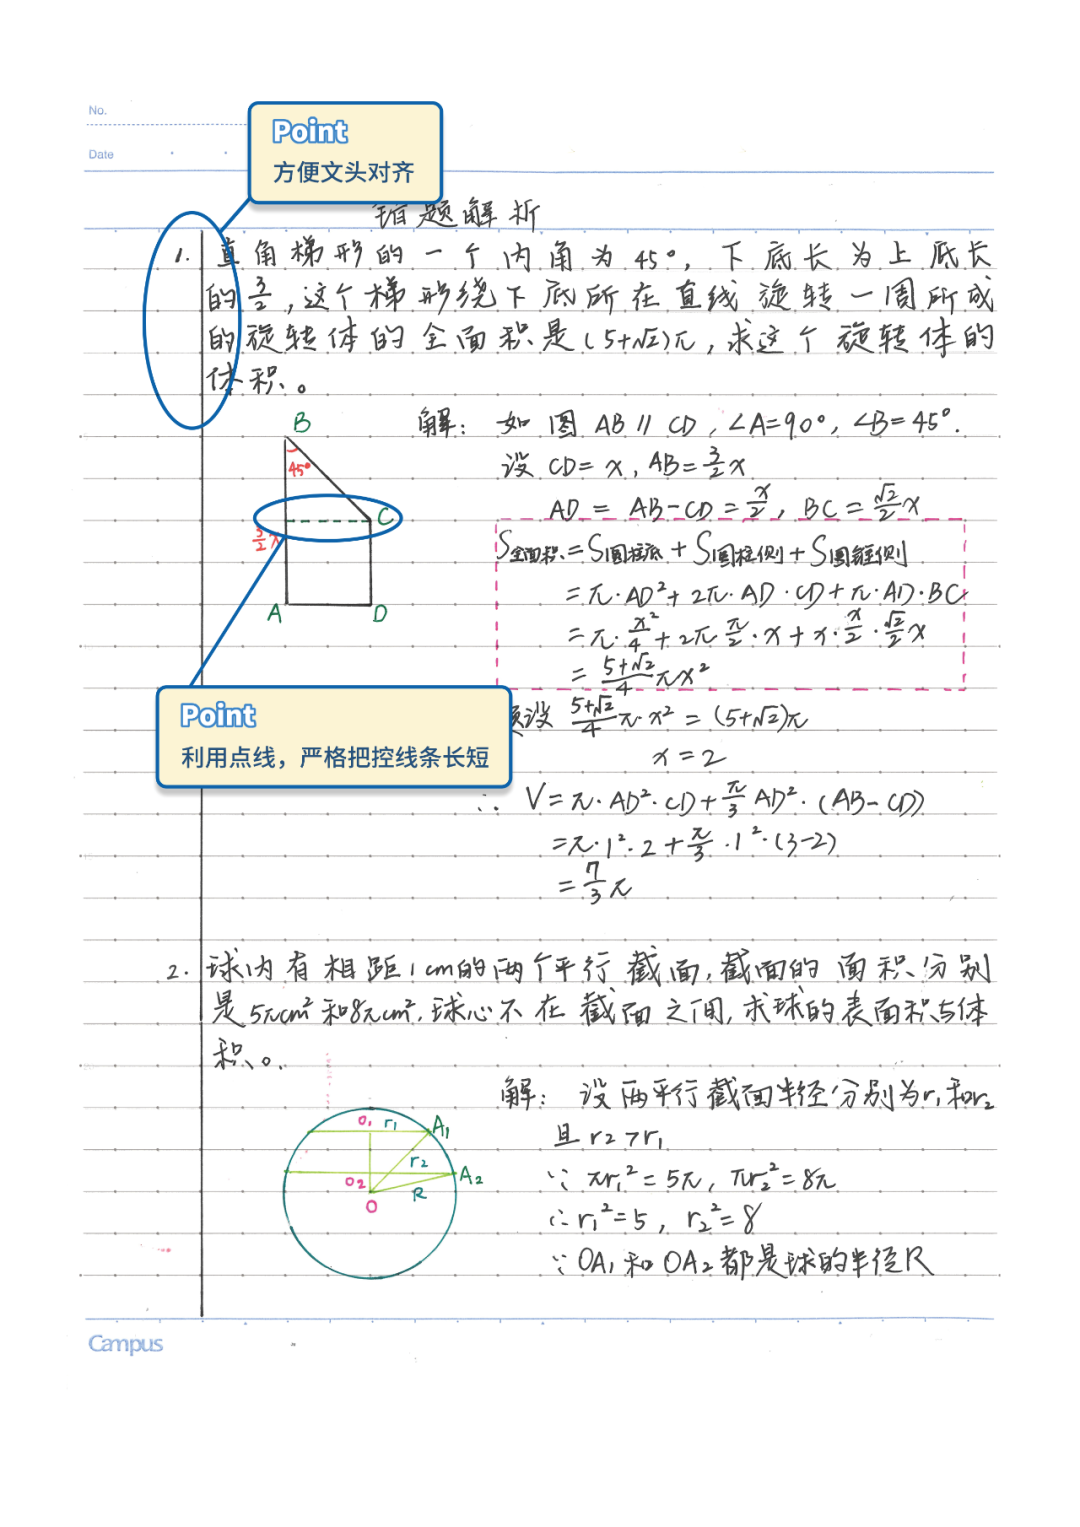 No.
Date
Point
方便文头对齐
错题解析
1. 直角梯形的一个内角为45°, 下底长为上底长
的3/2,这个梯形绕下底所在直线旋转一周所成
的旋转体的全面积是(5+√2)π,求这个旋转体的
体积。
B
45°
C
3/2 x
A
D
解: 如图 AB∥CD, ∠A=90°, ∠B=45°.
设 CD=x, AB=3/2x
AD = AB-CD = x/2, BC = √2/2 x
S全面积=S圆柱底+S圆柱侧+S圆锥侧
=π·AD²+2π·AD·CD+π·AD·BC
=π·x²/4+2π π/2·x+x·x/2·√2/2x
= 5+√2/4 πx²
Point
利用点线，严格把控线条长短
设 5+√2/4 π·x² = (5+√2)π
x=2
∴ V=π·AD²·CD+π/3 AD²·(AB-CD)
=π·1²·2+π/3·1²·(3-2)
=7/3π
2. 球内有相距1cm的两个平行截面,截面的面积分别
是5πcm²和8πcm²,球心不在截面之间,求球的表面积与体
积。
O₁ r₁ A₁
r₂
O₂ A₂
R
O
解: 设两平行截面半径分别为r₁和r₂
且 r₂>r₁
∵ πr₁²=5π, πr₂²=8π
∴ r₁²=5, r₂²=8
∵ OA₁和OA₂都是球的半径R
Campus